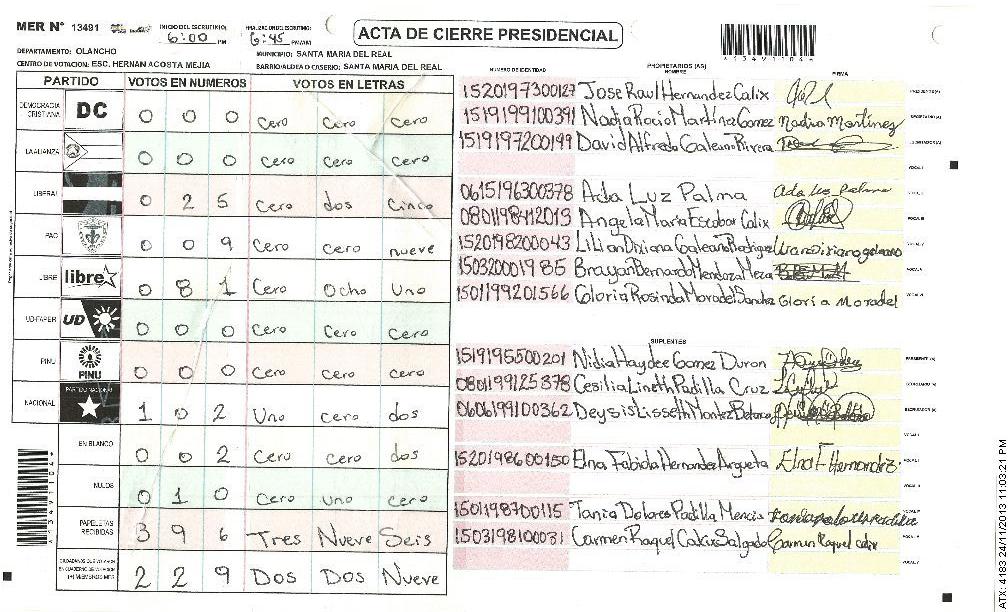 MER N° 13491
INICIO DEL ESCRUTINIO: 6:00 PM
FINALIZACION ESCRUTINIO: 6:45 PM/AM
ACTA DE CIERRE PRESIDENCIAL
*13491104*
DEPARTAMENTO: OLANCHO
MUNICIPIO: SANTA MARIA DEL REAL
CENTRO DE VOTACION: ESC. HERNAN ACOSTA MEJIA
BARRIO/ALDEA O CASERIO: SANTA MARIA DEL REAL
PARTIDO VOTOS EN NUMEROS VOTOS EN LETRAS
DEMOCRACIA CRISTIANA DC 0 0 0 Cero Cero Cero
LA ALIANZA 0 0 0 Cero Cero Cero
LIBERAL 0 2 5 Cero dos Cinco
PAC 0 0 9 Cero cero nueve
LIBRE libre 0 8 1 Cero Ocho Uno
UD-FAPER UD 0 0 0 Cero Cero Cero
PINU PINU 0 0 0 Cero Cero Cero
NACIONAL PARTIDO NACIONAL 1 0 2 Uno cero dos
EN BLANCO 0 0 2 Cero cero dos
NULOS 0 1 0 Cero uno cero
PAPELETAS RECIBIDAS 3 9 6 Tres Nueve Seis
2 2 9 Dos Dos Nueve
NUMERO DE IDENTIDAD PROPIETARIOS (AS) NOMBRE FIRMA
1520197300127 Jose Raul Hernandez Calix PRESIDENTE(A)
1519199100391 Nadia Rocio Martinez Gomez Nadia Martinez SECRETARIO (A)
1519197200199 David Alfredo Galeano Rivera ESCRUTADOR (A)
VOCAL I
0615196300378 Ada Luz Palma Ada luz palma
0801198412013 Angela Maria Escobar Calix
1520198200043 Lilian Diviana Galeano VOCAL IV
150320001985 Brayan Bernardo Mendoza Meza
1501199201566 Gloria Rosinda Moradel Sanchez Gloria Moradel VOCAL VI
SUPLENTES
1519195500201 Nidia Haydee Gomez Duron PRESIDENTE (A)
0801199125378 Cesilia Lineth Padilla Cruz SECRETARIO (A)
0606199100362 Deysis Lisseth Montez ESCRUTADOR (A)
VOCAL I
1520198600150 Elna Fabiola Hernandez Argueta Elna F Hernandez
1501198700115 Tania Dolores Padilla Mencis
1503198100031 Carmen Raquel Calix Salgado Carmen Raquel calix
VOCAL V
*13491104*
ATX: 4183 24/11/2013 11:03:21 PM